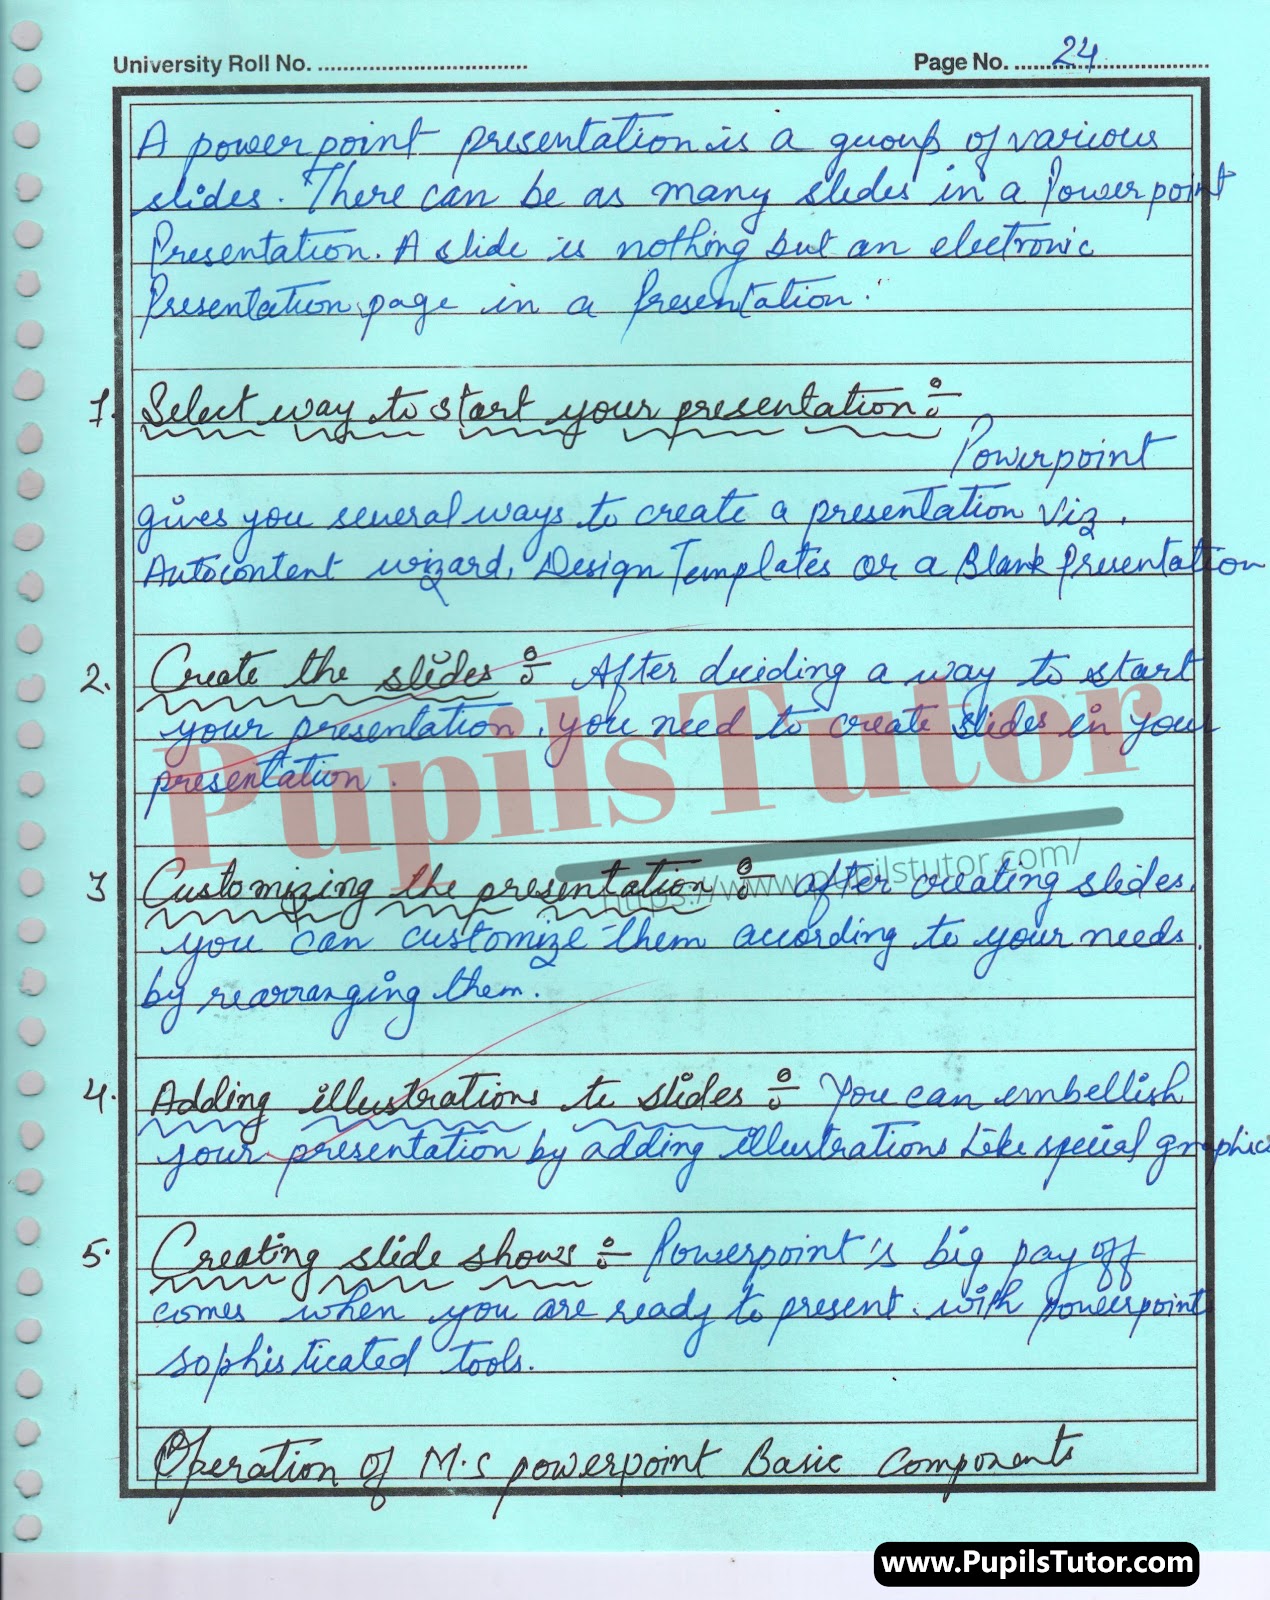 University Roll No. ................................. Page No. ....24....
A powerpoint presentation is a group of various
slides. There can be as many slides in a Powerpoint
Presentation. A slide is nothing but an electronic
Presentation page in a Presentation.
1. Select way to start your presentation :-
Powerpoint
gives you several ways to create a presentation Viz.
Autocontent wizard, Design Templates or a Blank Presentation
2. Create the slides :- After deciding a way to start
your presentation, you need to create slides in your
presentation.
PupilsTutor
3 Customizing the presentation :- after creating slides,
https://www.pupilstutor.com/
you can customize them according to your needs,
by rearranging them.
4. Adding illustrations to slides :- You can embellish
your presentation by adding illustrations Like special graphics
5. Creating slide shows :- Powerpoint's big pay off
comes when you are ready to present with powerpoint
sophisticated tools.
Operation of M.S powerpoint Basic Components
www.PupilsTutor.com